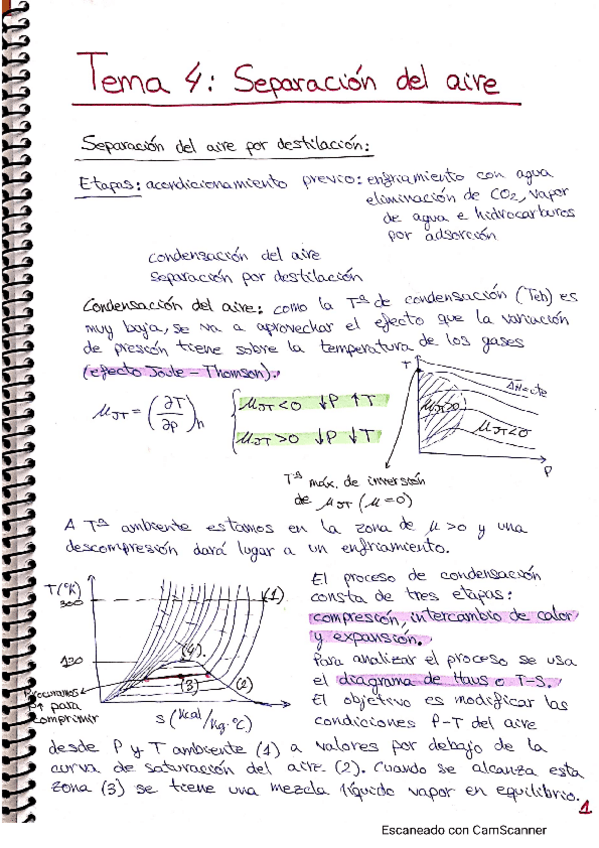 Tema 4: Separación del aire
Separación del aire por destilación:
Etapas: acondicionamiento previo: enfriamiento con agua
eliminación de CO2, vapor
de agua e hidrocarburos
por adsorción
condensación del aire
separación por destilación
Condensación del aire: como la Tª de condensación (Teb) es
muy baja, se va a aprovechar el efecto que la variación
de presión tiene sobre la temperatura de los gases
(efecto Joule-Thomson).
μJT = (∂T/∂P)h
μJT<0 ↓P ↑T
μJT>0 ↓P ↓T
T
ΔH=cte
μJT>0
μJT<0
P
Tª máx. de inversión
de μJT (μ=0)
A Tª ambiente estamos en la zona de μ>0 y una
descompresión dará lugar a un enfriamiento.
T(ºK)
300
130
(1)
(4)
(3)
(2)
Procuramos
P↑ para
comprimir
S (Kcal/Kg·ºC)
El proceso de condensación
consta de tres etapas:
compresión, intercambio de calor
y expansión.
Para analizar el proceso se usa
el diagrama de Haus o T-S.
El objetivo es modificar las
condiciones P-T del aire
desde P y T ambiente (1) a valores por debajo de la
curva de saturación del aire (2). Cuando se alcanza esta
zona (3) se tiene una mezcla líquido vapor en equilibrio.
1
Escaneado con CamScanner